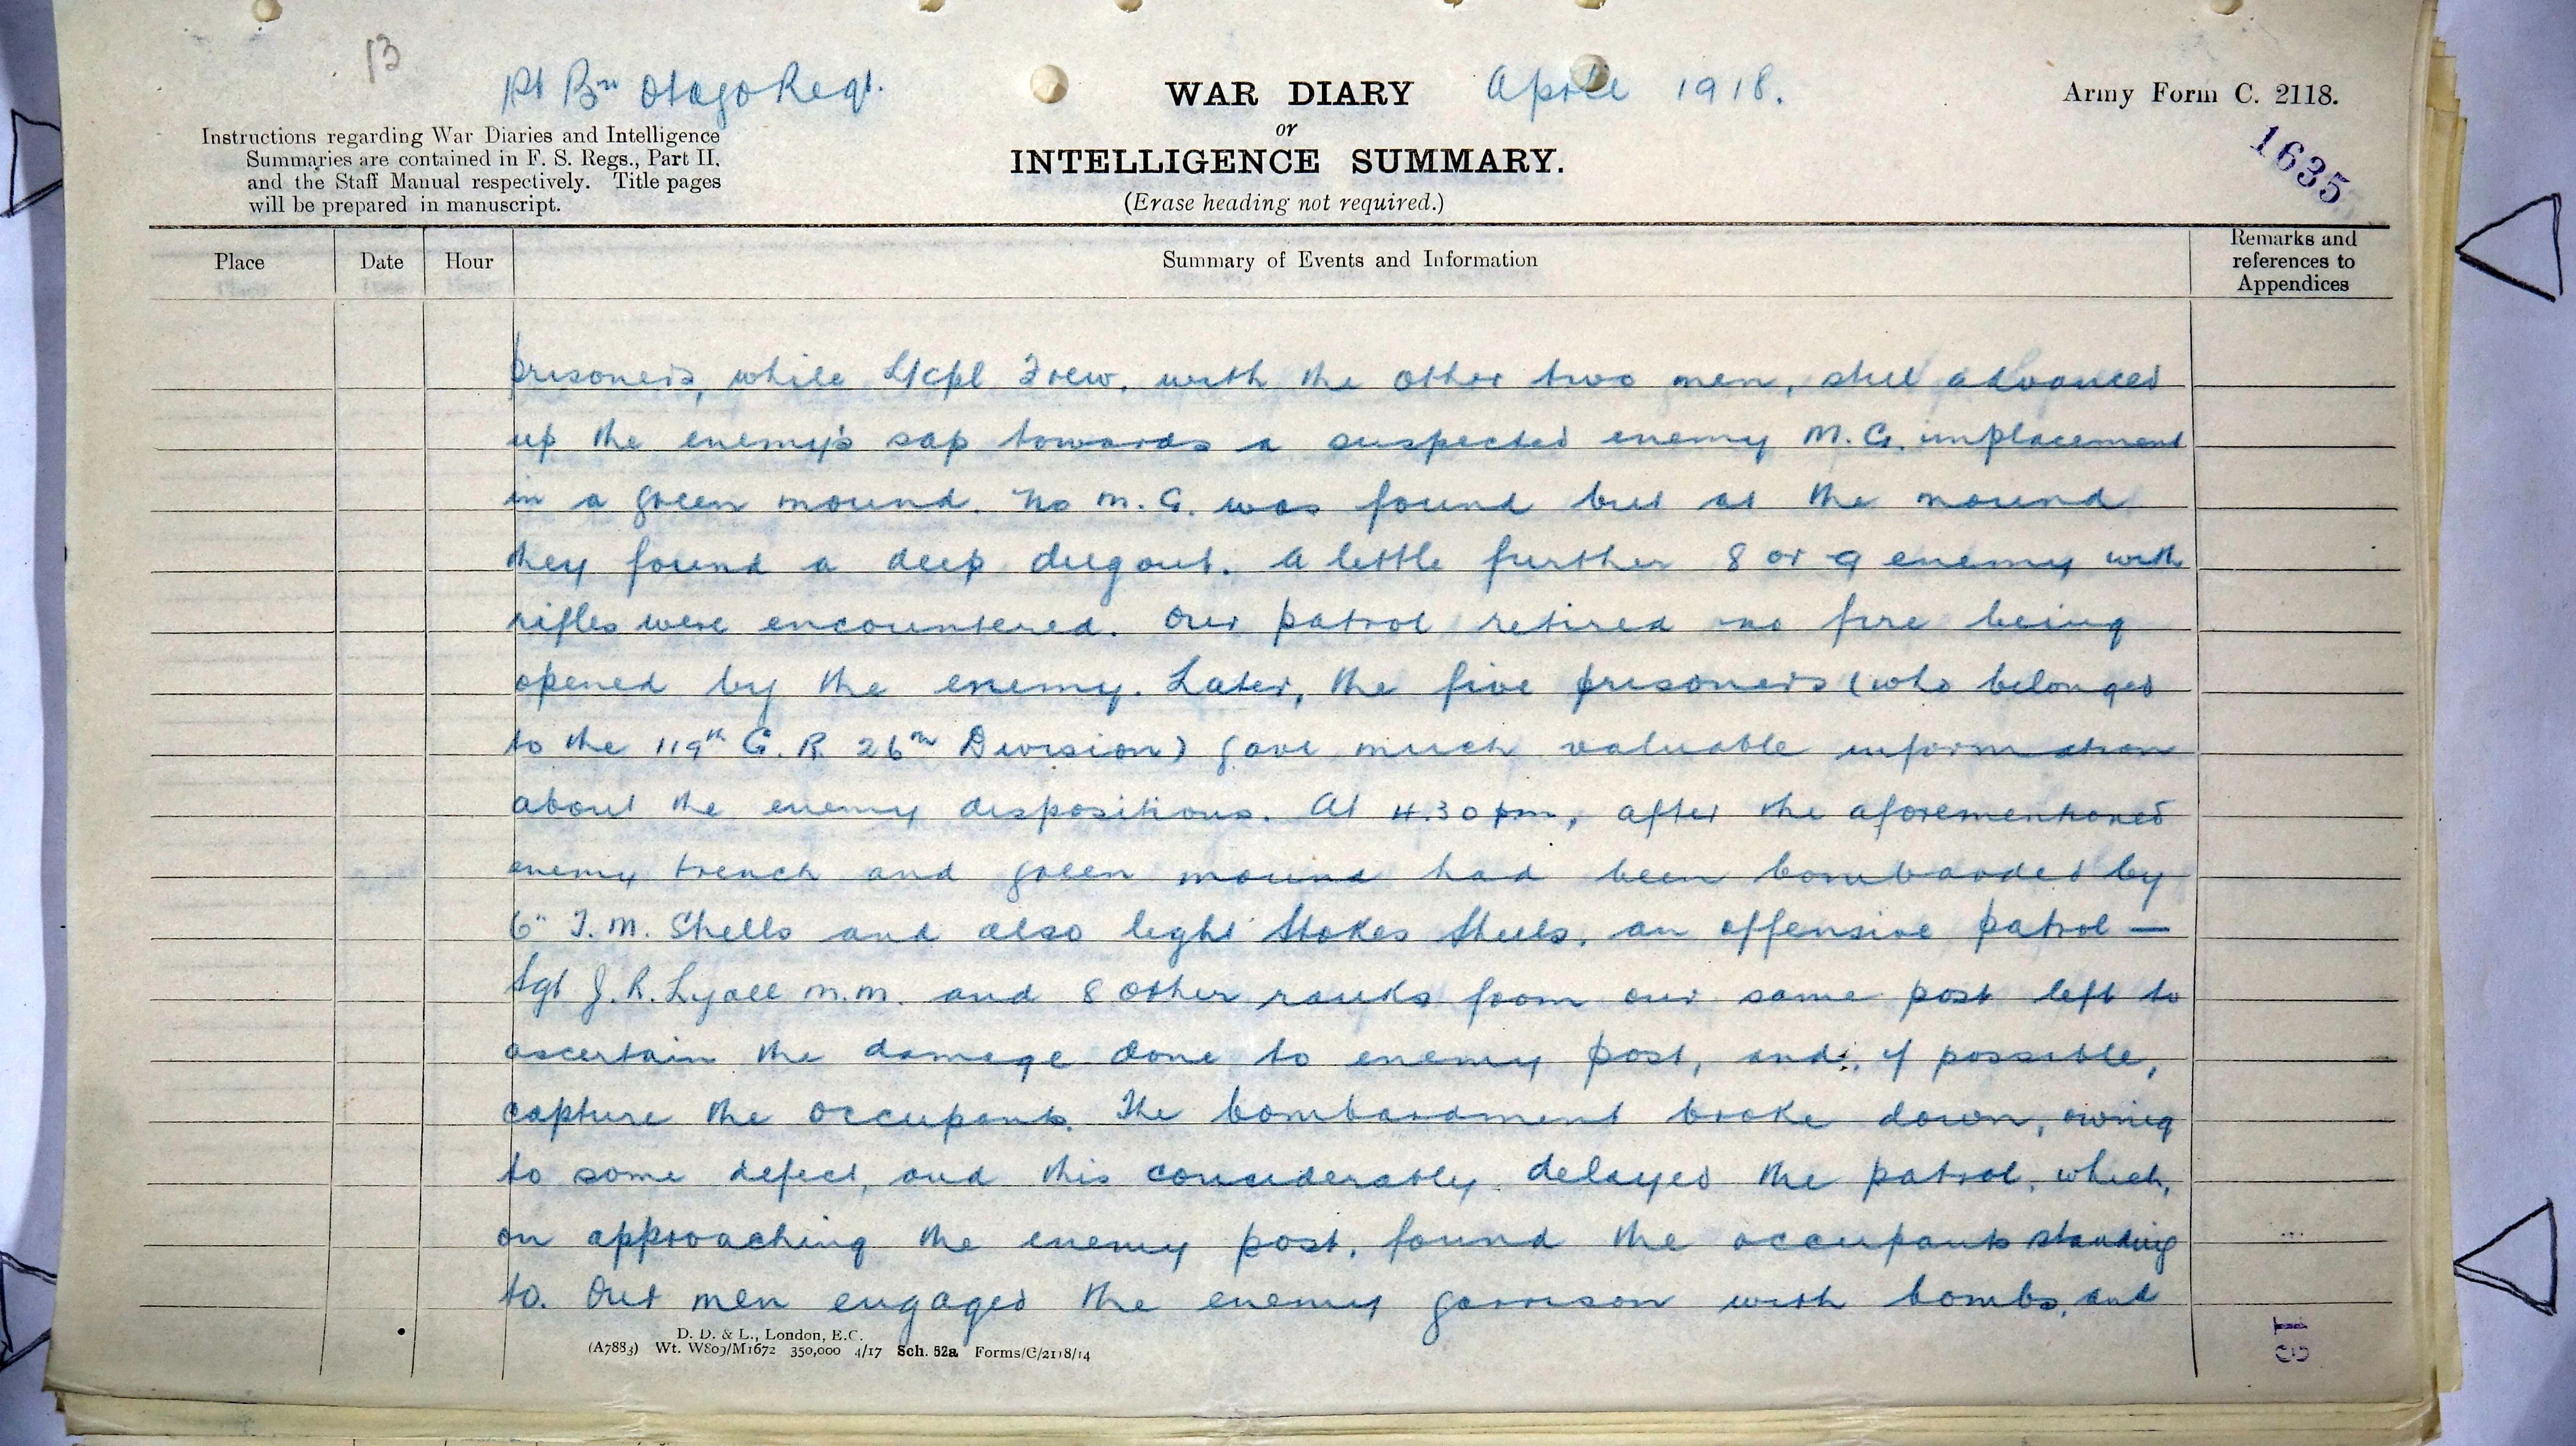 13
1st Bn Otago Regt.
WAR DIARY
April 1918.
Army Form C. 2118.
or
INTELLIGENCE SUMMARY.
(Erase heading not required.)
1635
Instructions regarding War Diaries and Intelligence
Summaries are contained in F. S. Regs., Part II.
and the Staff Manual respectively. Title pages
will be prepared in manuscript.
Place Date Hour Summary of Events and Information Remarks and
references to
Appendices
prisoners, while L/cpl Frew, with the other two men, still advanced
up the enemy's sap towards a suspected enemy M.G. implacement
in a green mound. No M.G. was found but at the mound
they found a deep dugout. A little further 8 or 9 enemy with
rifles were encountered. Our patrol retired no fire being
opened by the enemy. Later, the five prisoners (who belonged
to the 119th G.R. 26th Division) gave much valuable information
about the enemy dispositions. At 4.30 pm, after the aforementioned
enemy trench and green mound had been bombarded by
6" T.M. Shells and also light Stokes Shells, an offensive patrol —
Sgt J.R. Lyall M.M. and 8 other ranks from our same post left to
ascertain the damage done to enemy post, and, if possible,
capture the occupants. The bombardment broke down, owing
to some defect, and this considerably delayed the patrol, which,
on approaching the enemy post, found the occupants standing
to. Our men engaged the enemy garrison with bombs, and
D. D. & L., London, E.C.
(A7883) Wt. W809/M1672 350,000 4/17 Sch. 52a Forms/C/2118/14
13